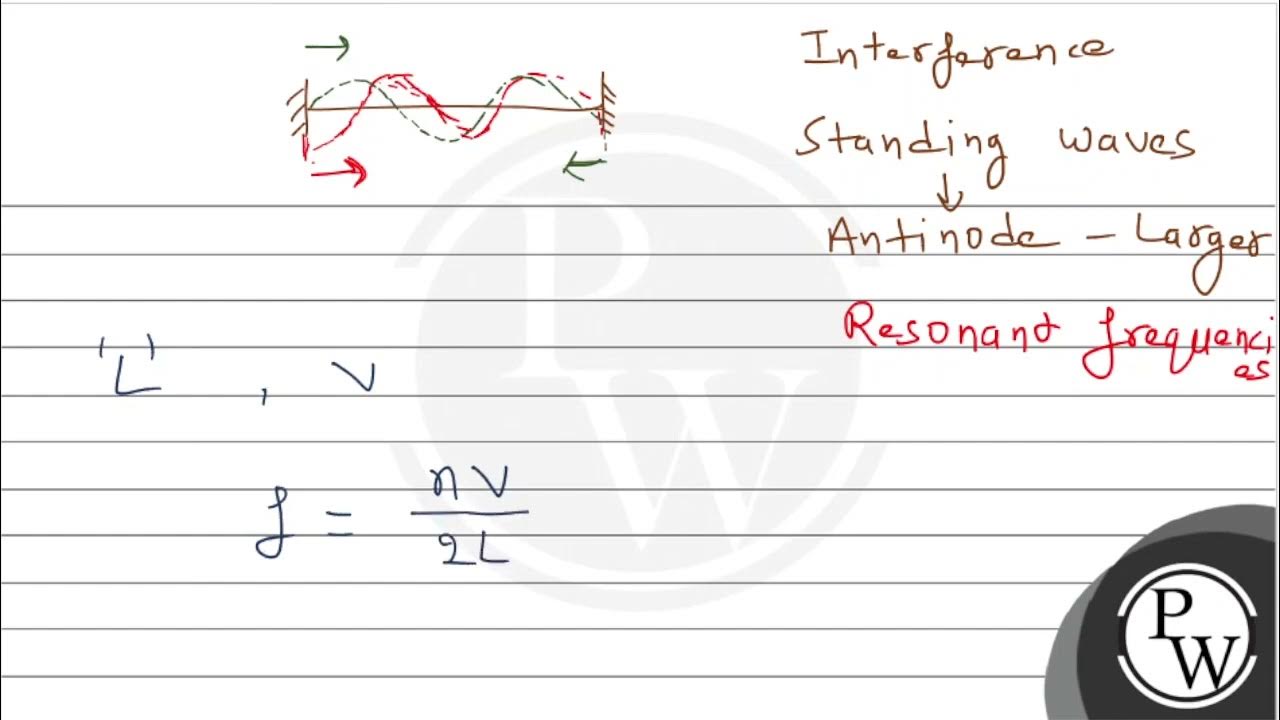 Interference
Standing waves
↓
Antinode – Larger
Resonant frequencies
'L' , V
f = nV / 2L
P
W
P
W